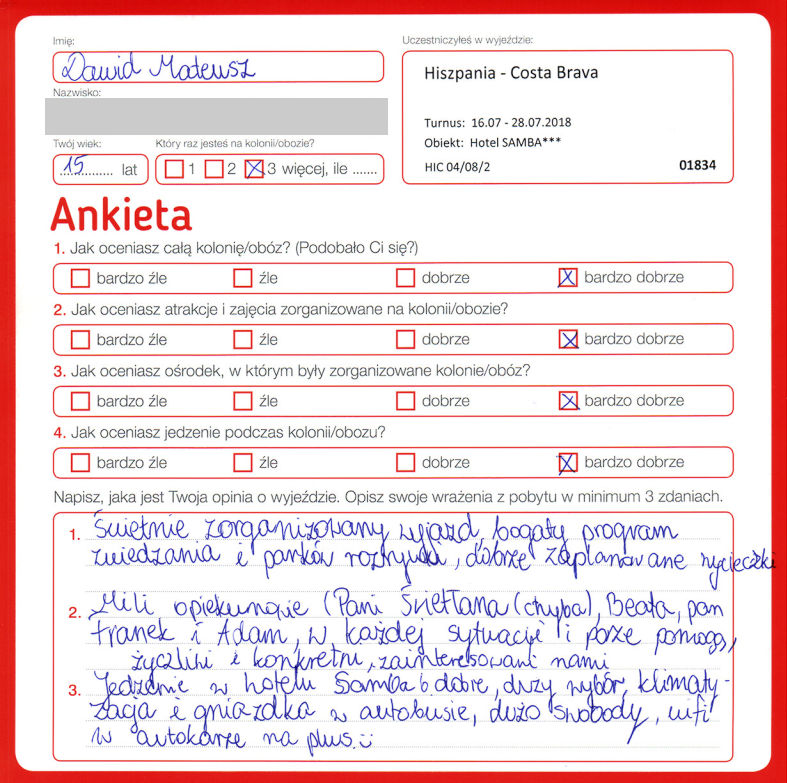 Imię:
Dawid Mateusz
Nazwisko:
Twój wiek:
15 lat
Który raz jesteś na kolonii/obozie?
1 2 3 więcej, ile .......
Uczestniczyłeś w wyjeździe:
Hiszpania - Costa Brava
Turnus: 16.07 - 28.07.2018
Obiekt: Hotel SAMBA***
HIC 04/08/2 01834
Ankieta
1. Jak oceniasz całą kolonię/obóz? (Podobało Ci się?)
bardzo źle źle dobrze bardzo dobrze
2. Jak oceniasz atrakcje i zajęcia zorganizowane na kolonii/obozie?
bardzo źle źle dobrze bardzo dobrze
3. Jak oceniasz ośrodek, w którym były zorganizowane kolonie/obóz?
bardzo źle źle dobrze bardzo dobrze
4. Jak oceniasz jedzenie podczas kolonii/obozu?
bardzo źle źle dobrze bardzo dobrze
Napisz, jaka jest Twoja opinia o wyjeździe. Opisz swoje wrażenia z pobytu w minimum 3 zdaniach.
1. Świetnie zorganizowany wyjazd, bogaty program
zwiedzania i parków rozrywki, dobrze zaplanowane wycieczki
2. Mili opiekunowie (Pani Swietłana (chyba), Beata, pan
Franek i Adam, w każdej sytuacji i porze pomogą,
życzliwi i konkretni, zainteresowani nami
3. Jedzenie w hotelu Samba b dobre, duży wybór, klimaty-
zacja i gniazdka w autobusie, dużo swobody, wifi
w autokarze na plus. :)